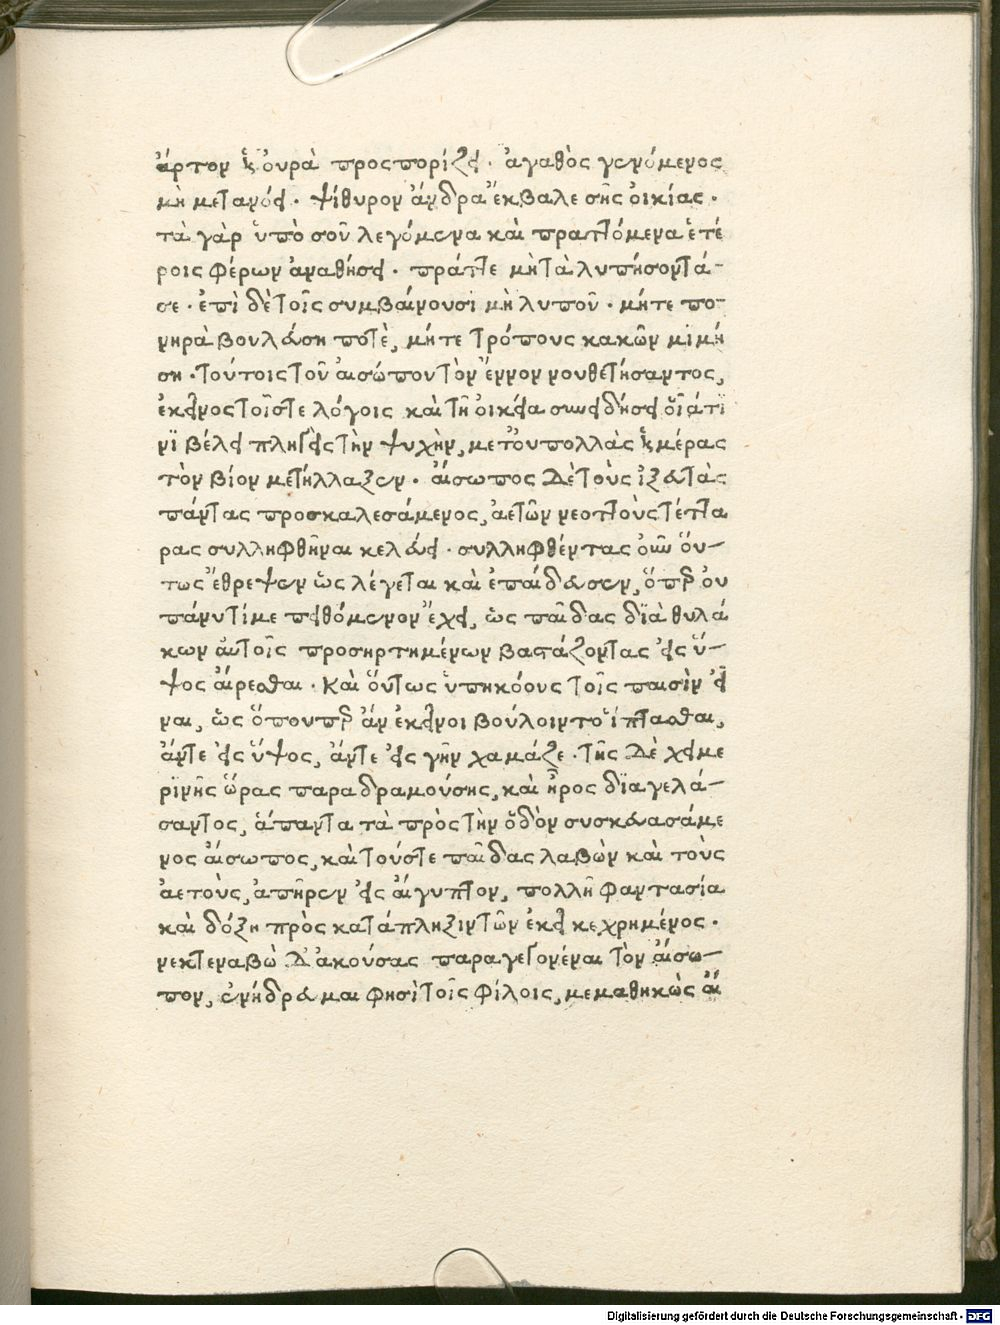 ἄρτον ἡ οὐρὰ προσπορίζει · ἀγαθὸς γενόμενος
μὴ μετανόει · ψίθυρον ἄνδρα ἔκβαλε σῆς οἰκίας ·
τὰ γὰρ ὑπὸ σοῦ λεγόμενα καὶ πραττόμενα ἑτέ
ροις φέρων ἀναθήσει · πράττε μὴ τὰ λυπήσοντά-
σε · ἐπὶ δὲ τοῖς συμβαίνουσι μὴ λυποῦ · μήτε πο-
νηρὰ βουλεύση ποτὲ, μήτε τρόπους κακῶν μιμή
ση · τούτοις τοῦ αἰσώπου τὸν ἔννον νουθετήσαντος,
ἐκεῖνος τοῖς τε λόγοις καὶ τῆ οἰκεία συνειδήσει οἷά τι
νὶ βέλει πληγεὶς τὴν ψυχὴν, μετ' οὐ πολλὰς ἡμέρας
τὸν βίον μετήλλαξεν · αἴσωπος δὲ τοὺς ἰξευτὰς
πάντας προσκαλεσάμενος, ἀετῶν νεοττοὺς τέττα
ρας συλληφθῆναι κελεύει · συλληφθέντας οὖν οὕ-
τως ἔθρεψεν ὡς λέγεται καὶ ἐπαίδευσεν, ὅπερ οὐ
πάνυ τί με πειθόμενον ἔχει, ὡς παῖδας διὰ θυλά
κων αὐτοῖς προσηρτημένων βαστάζοντας εἰς ὕ-
ψος αἴρεσθαι · Καὶ οὕτως ὑπηκόους τοῖς παισὶν εἶ
ναι, ὡς ὅπουπερ ἂν ἐκεῖνοι βούλοιντο ἵπτασθαι,
ἄντε εἰς ὕψος, ἄντε εἰς γῆν χαμάζε · τῆς δὲ χειμε
ρινῆς ὥρας παραδραμούσης, καὶ ἦρος διαγελά-
σαντος, ἅπαντα τὰ πρὸς τὴν ὁδὸν συσκευασάμε
νος αἴσωπος, καὶ τούς τε παῖδας λαβὼν καὶ τοὺς
ἀετοὺς, ἀπῆρεν εἰς αἴγυπτον, πολλῆ φαντασία
καὶ δόξη πρὸς κατάπληξιν τῶν ἐκεῖ κεχρημένος ·
νεκτεναβὼ δ' ἀκούσας παραγεγονέναι τὸν αἴσω-
πον, ἐνήδρευμαι φησὶ τοῖς φίλοις, μεμαθηκὼς αἴ
Digitalisierung gefördert durch die Deutsche Forschungsgemeinschaft - DFG